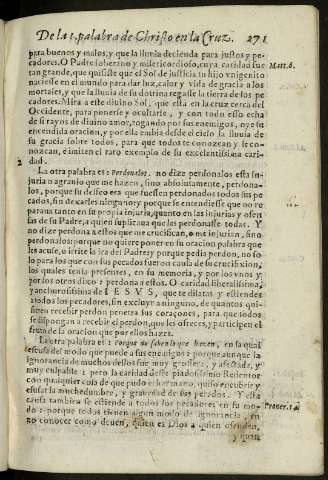 De la 1. palabra de Christo en la Cruz. 271
para buenos y malos, y que la lluvia decienda para justos y pe-
cadores. O Padre soberano y misericordioso, cuya caridad fue Matt. 6.
tan grande, que quisiste que el Sol de justicia tu hijo vnigenito
naciesse en el mundo para dar luz, calor y vida de gracia a los
mortales, y que la lluuia de su dotrina regasse la tierra de los pe
cadores. Mira a este diuino Sol, que esta en la cruz cerca del
Occidente, para ponerse y ocultarse, y con todo esso echa
de si rayos de diuino amor, rogando por sus enemigos, oye su
encendida oracion, y por ella embia desde el cielo la lluuia de
su gracia sobre todos, para que todos te conozcan y se co-
nozcan, è imiten el raro exemplo de su excelentissima cari-
dad.
2 La otra palabra es: Perdonalos, no dize perdonalos esta in-
juria o agrauio que me hazen, sino absolutamente, perdona-
los, porque su desseo era que fuessen perdonados todos sus pe
cados, sin dexarles ninguno: y porque se entendiesse que no re
paraua tanto en su propia injuria, quanto en las injurias y ofen
sas de su Padre, a quien suplicaua que las perdonasse todas. Y
no dize perdona a estos que me crucifican, o me injurian, sino
perdonalos: porque no quiere poner en su oracion palabra que
les acuse, o irrite la ira del Padre: y porque pedia perdon, no so
lo para los que con sus pecados fueron causa de su crucifixion,
los quales tenia presentes, en su memoria, y por los vnos y
por los otros dixo: perdona a estos. O caridad liberalissima,
y anchurosissima de IESVS, que te dilatas y estiendes
a todos los pecadores, sin excluyr a ninguno, de quantos qui-
sieren recebir perdon penetra sus coraçones, para que todos
se dispongan a recebir el perdon, que les ofreces, y participen el
fruto de la oracion que por ellos hazes.
La otra palabra es: Porque no saben lo que hazen, en la qual
escusa del modo que puede a sus enemigos: porque aunque la
ignorancia de muchos dellos fue muy grossera, y afectada, y
muy culpable: pero la caridad deste piadosissimo Redentor
con qualquier cosa de que pudo echar mano, quiso encubrir y
escusar la muchedumbre, y grauedad de sus pecados. Y esta
causa tambien se estiende a todos los pecadores en su mo-
do: porque todos tienen algun modo de ignorancia, en
no conocer como deuen, quien es Dios a quien ofenden,
y quan